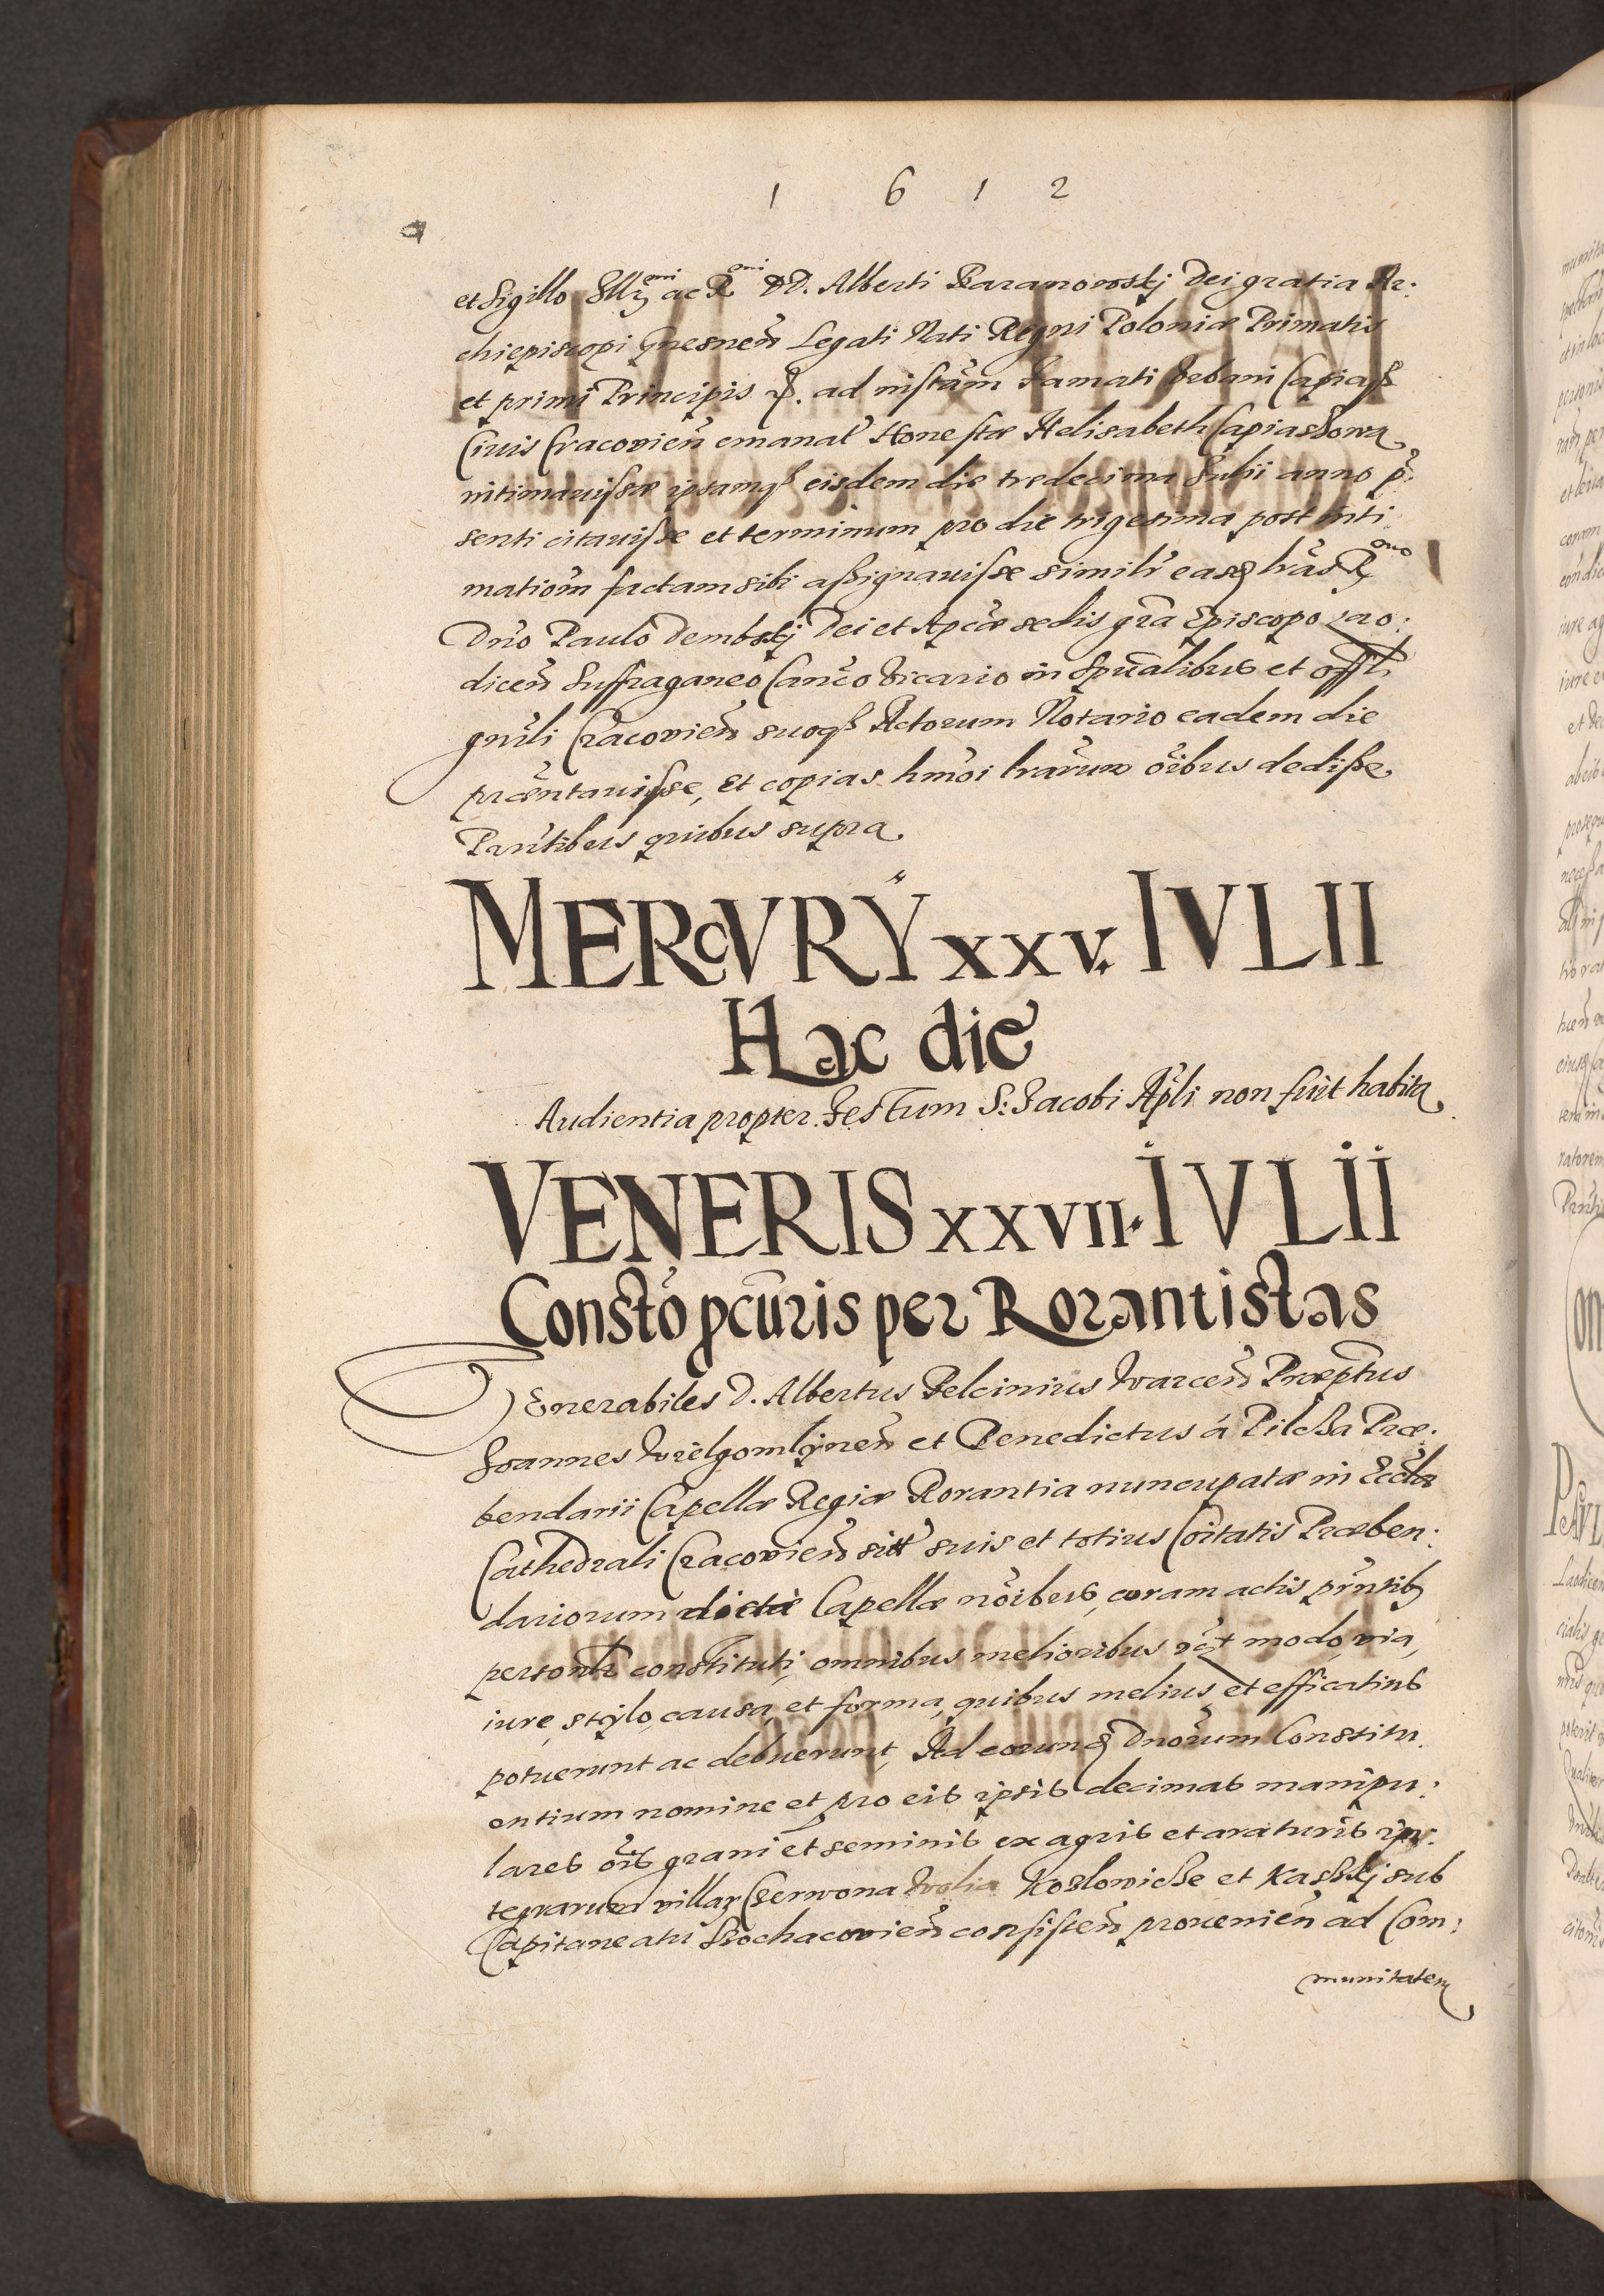 1 6 1 2
et Sigillo Illmi ac Rmi DD. Alberti Baranowskj Dei gratia Ar:
chiepiscopi Gnesneñ Legati Nati Regni Poloniæ Primatis
et primi Principis &. ad instãm Famati Vrbani
Ciuis Cracovieñ emanat Honestæ Helisabeth
intimavisse ipsamq eisdem die tredecima Julii anno p̃:
senti citavisse et terminum pro die trigesima post inti
matiõm factam sibi assignavisse simili easq lrãs Rmo
Dño Paulo Dembskj Dei et Apcæ sedis grã Episcopo Lao:
diceñ Suffraganeo Canco Vicario in Spũalibus et Offli
gnñli Cracovieñ suoq Actorum Notario eadem die
præntavisse, et copias hmõi lrãrum õibus dedisse
Prñtibus quibus supra
MERCVRŸ XXV. IVLII
Hac die
Audientia propter Festum S: Jacobi Apli non fuit habita
VENERIS XXVII. IVLII
Constõ pcũris per Rorantistas
VEnerabiles D. Albertus Belcinius Warceñ Præptus
Joannes Wielgomlÿneñ et Benedictus á Pilcza Præ:
bendarii Capellæ Regiæ Rorantia nuncupatæ in Eccla
Cathedrali Cracovieñ sitæ suis et totius Cõitatis Præben:
dariorum dictæ Capellæ nõibus, coram actis prñtib
personlr constituti, omnibus melioribus modo, via,
iure, stylo, causa, et forma, quibus melius et efficatius
potuerunt ac debuerunt, Ad eorunq Dnõrum Constitu
entium nomine et pro eis ipsis decimas manipu:
lares õis grani et seminis ex agris et araturis in:
tegrarum villar Czerwona Wolia Kozlowicze et Kaskj sub
Capitaneatu Sochacovieñ consisteñ provenieñ ad Com:
munitatem